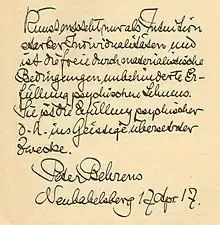 Kunst entsteht nur als Intuition
starker Individualitäten und
ist die freie durch materialistische
Bedingungen unbehinderte Er-
füllung psychischen
Sie ist die Erfüllung psychischer
d. h. ins Geistige übersetzter
Zwecke.
Peter Behrens
Neubabelsberg 17 Apr. 17.